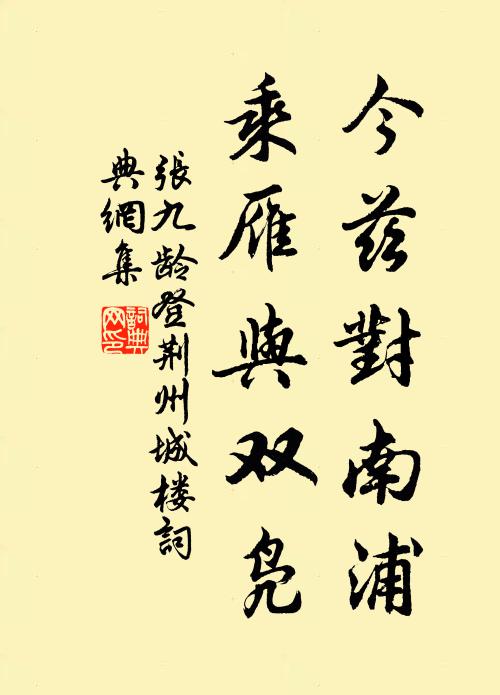 今兹對南浦
乘雁與双凫
張九龄登荆州城楼詞
典網集
詞典
网印